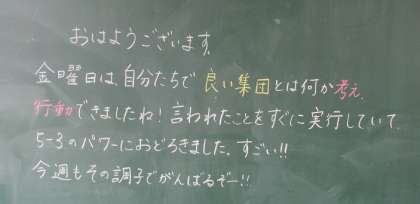 おはようございます。
金曜日は、自分たちで 良い集団とは何か考え、
行動できましたね！言われたことをすぐに実行していて、
5-3のパワーにおどろきました。すごい!!
今週もその調子でがんばるぞー!!